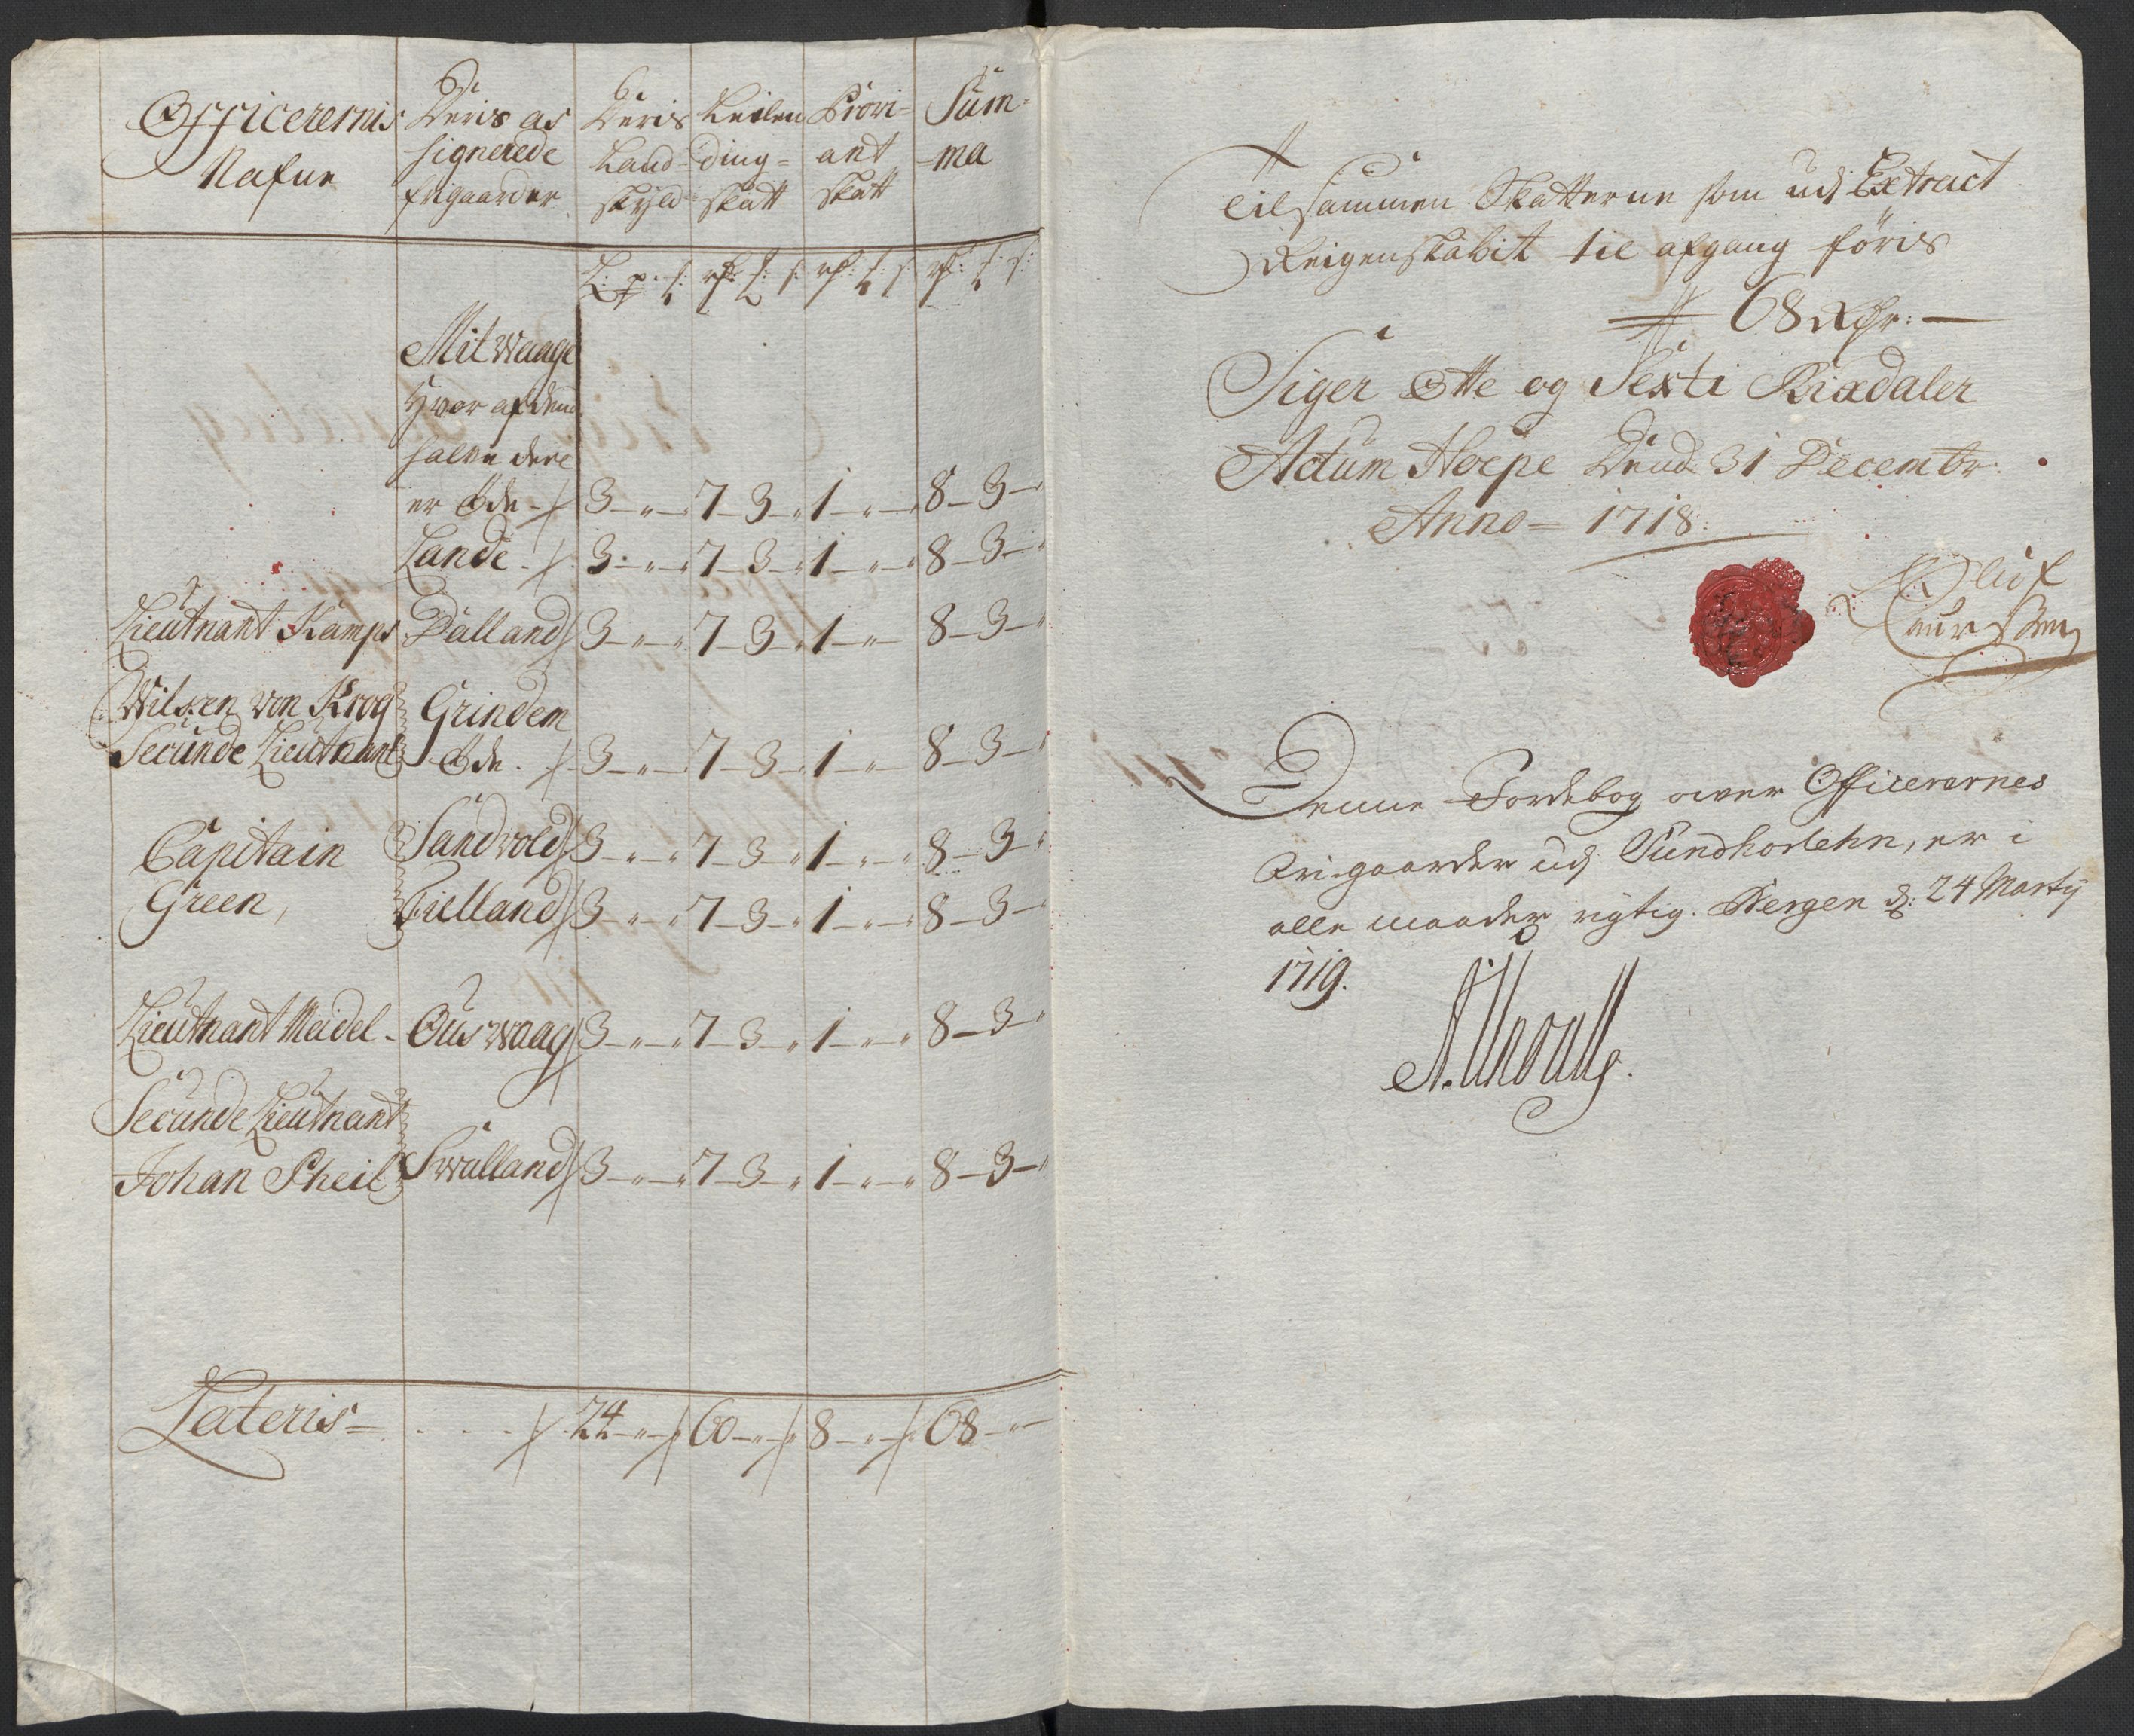 Officerernis Nafne | Deris as signerede frigaarder | Deris Land skyld | Leilen ding= skatt | Provi= ant skatt | Sum= ma
L: p: f: | rf: f: s: | rf: f: s: | rf: f: s:
Mitwaage
Hvor af dend
halve deel
er Øde - 3 - " - " 7 - 3 - " 1 - " - " 8 - 3 - "
Lande - 3 - " - " 7 - 3 - " 1 - " - " 8 - 3 - "
Lieutnant Kamps Dalland 3 - " - " 7 - 3 - " 1 - " - " 8 - 3 - "
Wilken von Krog Grindem
Secunde Lieutnant Øde - 3 - " - " 7 - 3 - " 1 - " - " 8 - 3 - "
Capitain Sandvold 3 - " - " 7 - 3 - " 1 - " - " 8 - 3 - "
Green, Tielland 3 - " - " 7 - 3 - " 1 - " - " 8 - 3 - "
Lieutnant Meidel - Ouswaag 3 - " - " 7 - 3 - " 1 - " - " 8 - 3 - "
Secunde Lieutnant
Johan Scheil Swalland 3 - " - " 7 - 3 - " 1 - " - " 8 - 3 - "
Lateris = . . . . 24 - " - " 60 - " - " 8 - " - " 68 - " -
Tilsammen Skatterne som udj Extract
Reigenskabit til afgang føris
68 Rdr: —
Siger Otte og Sexti Rixdaler
Actum Hoepe Dend 31 Decembr:
Anno = 1718:
Oluf
Laursen
Denne Jordebog over Officerernes
Frigaarder udj Sundhorlehn, er i
alle maader rigtig. Bergen d: 24 Martij
1719.